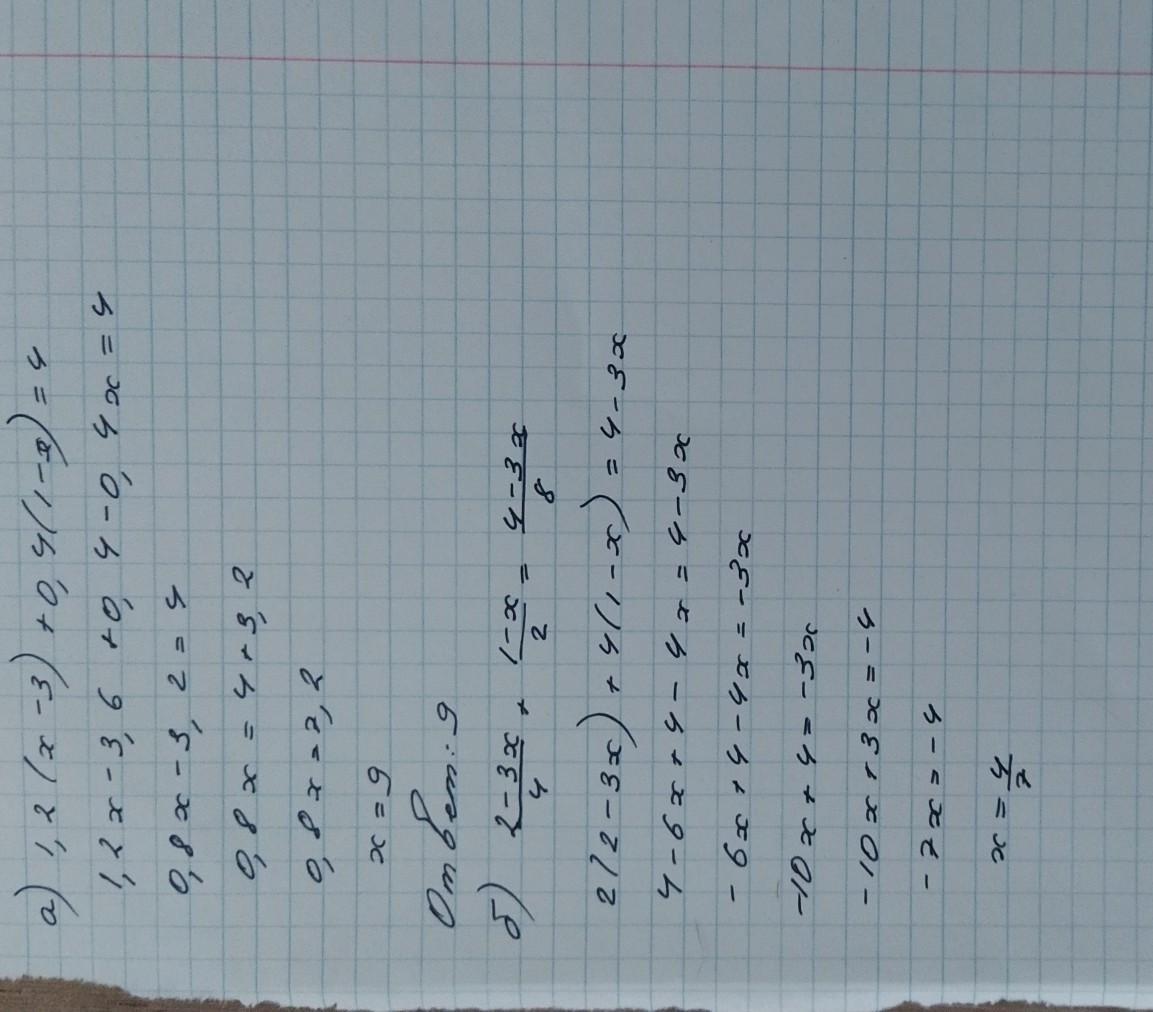 а) 1,2(x-3)+0,4(1-x)=4
1,2x-3,6+0,4-0,4x=4
0,8x-3,2=4
0,8x=4+3,2
0,8x=7,2
x=9
Ответ: 9
б) 2-3x/4 + 1-x/2 = 4-3x/8
2(2-3x)+4(1-x)=4-3x
4-6x+4-4x=4-3x
-6x+4-4x=-3x
-10x+4=-3x
-10x+3x=-4
-7x=-4
x=4/7